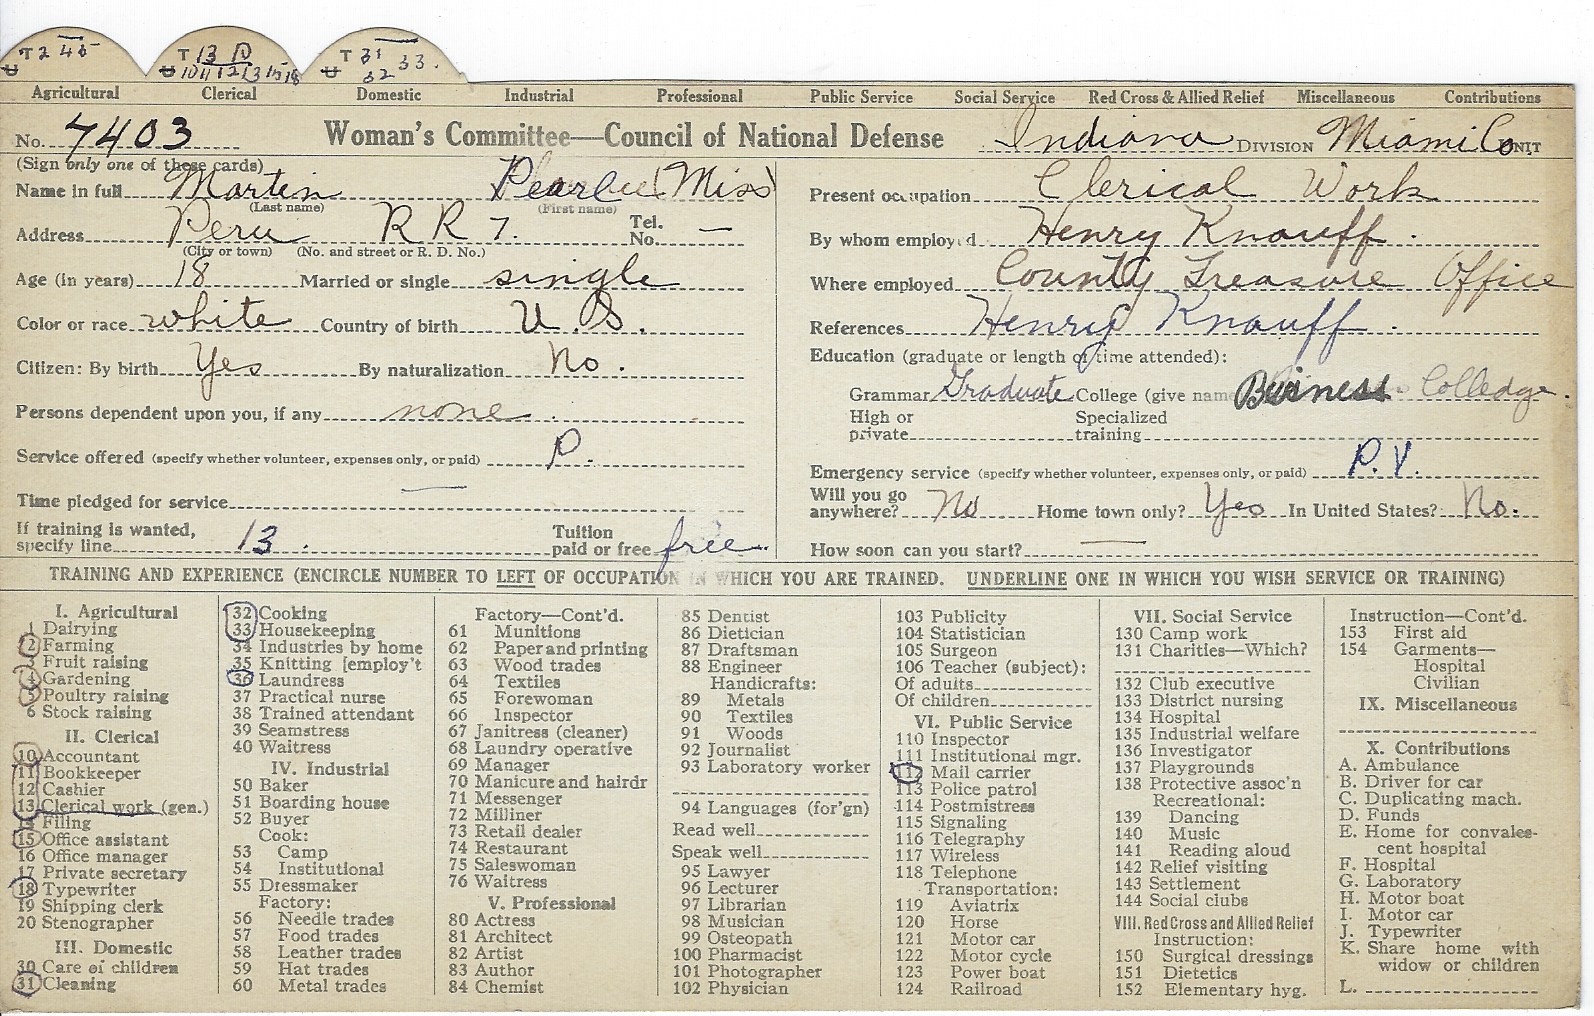 T 2 45
T 13 P
U 10 11 12 13 15 18
T 31 33.
U 32
Agricultural Clerical Domestic Industrial Professional Public Service Social Service Red Cross & Allied Relief Miscellaneous Contributions
No. 7403 Woman's Committee—Council of National Defense Indiana DIVISION Miami Co. UNIT
(Sign only one of these cards)
Name in full Martin Pearl (Miss)
(Last name) (First name)
Address Peru R R 7. Tel. No. —
(City or town) (No. and street or R. D. No.)
Age (in years) 18 Married or single single
Color or race white Country of birth U. S.
Citizen: By birth Yes By naturalization No.
Persons dependent upon you, if any none.
Service offered (specify whether volunteer, expenses only, or paid) P.
Time pledged for service —
If training is wanted,
specify line 13. Tuition
paid or free free.
Present occupation Clerical Work
By whom employed Henry Knauff.
Where employed County Treasure Office
References Henry Knauff.
Education (graduate or length of time attended):
Grammar Graduate College (give name Business Colledge.
High or
private Specialized
training
Emergency service (specify whether volunteer, expenses only, or paid) P. V.
Will you go
anywhere? No Home town only? Yes In United States? No.
How soon can you start? —
TRAINING AND EXPERIENCE (ENCIRCLE NUMBER TO LEFT OF OCCUPATION IN WHICH YOU ARE TRAINED. UNDERLINE ONE IN WHICH YOU WISH SERVICE OR TRAINING)
I. Agricultural
1 Dairying
2 Farming
3 Fruit raising
4 Gardening
5 Poultry raising
6 Stock raising
II. Clerical
10 Accountant
11 Bookkeeper
12 Cashier
13 Clerical work (gen.)
14 Filing
15 Office assistant
16 Office manager
17 Private secretary
18 Typewriter
19 Shipping clerk
20 Stenographer
III. Domestic
30 Care of children
31 Cleaning
32 Cooking
33 Housekeeping
34 Industries by home
35 Knitting [employ't
36 Laundress
37 Practical nurse
38 Trained attendant
39 Seamstress
40 Waitress
IV. Industrial
50 Baker
51 Boarding house
52 Buyer
Cook:
53 Camp
54 Institutional
55 Dressmaker
Factory:
56 Needle trades
57 Food trades
58 Leather trades
59 Hat trades
60 Metal trades
Factory—Cont'd.
61 Munitions
62 Paper and printing
63 Wood trades
64 Textiles
65 Forewoman
66 Inspector
67 Janitress (cleaner)
68 Laundry operative
69 Manager
70 Manicure and hairdr
71 Messenger
72 Milliner
73 Retail dealer
74 Restaurant
75 Saleswoman
76 Waitress
V. Professional
80 Actress
81 Architect
82 Artist
83 Author
84 Chemist
85 Dentist
86 Dietician
87 Draftsman
88 Engineer
Handicrafts:
89 Metals
90 Textiles
91 Woods
92 Journalist
93 Laboratory worker
94 Languages (for'gn)
Read well
Speak well
95 Lawyer
96 Lecturer
97 Librarian
98 Musician
99 Osteopath
100 Pharmacist
101 Photographer
102 Physician
103 Publicity
104 Statistician
105 Surgeon
106 Teacher (subject):
Of adults
Of children
VI. Public Service
110 Inspector
111 Institutional mgr.
112 Mail carrier
113 Police patrol
114 Postmistress
115 Signaling
116 Telegraphy
117 Wireless
118 Telephone
Transportation:
119 Aviatrix
120 Horse
121 Motor car
122 Motor cycle
123 Power boat
124 Railroad
VII. Social Service
130 Camp work
131 Charities—Which?
132 Club executive
133 District nursing
134 Hospital
135 Industrial welfare
136 Investigator
137 Playgrounds
138 Protective assoc'n
Recreational:
139 Dancing
140 Music
141 Reading aloud
142 Relief visiting
143 Settlement
144 Social clubs
VIII. Red Cross and Allied Relief
Instruction:
150 Surgical dressings
151 Dietetics
152 Elementary hyg.
Instruction—Cont'd.
153 First aid
154 Garments—
Hospital
Civilian
IX. Miscellaneous
X. Contributions
A. Ambulance
B. Driver for car
C. Duplicating mach.
D. Funds
E. Home for convales-
cent hospital
F. Hospital
G. Laboratory
H. Motor boat
I. Motor car
J. Typewriter
K. Share home with
widow or children
L.